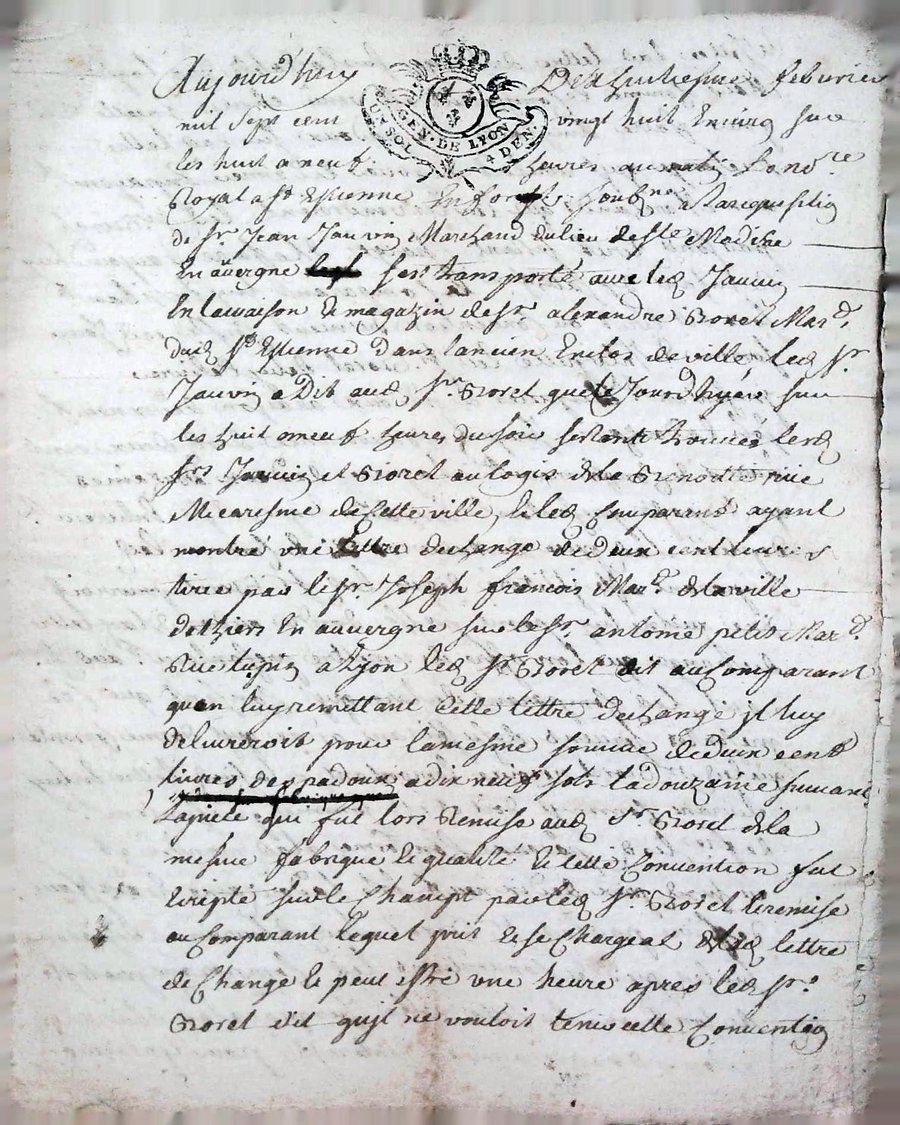 Aujourd'huy Dixhuitiesme feburier
GEN. DE LYON
UN SOL 4 DEN.
mil sept cent vingt huit Environ sur
les huit a neuf heures du matin Le no.re
Royal a St Estienne En forest soub.né a la requisition
de Sr. Jean Jauvin Marchand du lieu de Ste
En auvergne s'est transporté avec led Jauvin
En la maison & magazin de Sr. alexandre Mar.d
dud St Estienne dans lancien Enclos de ville led Sr.
Jauvin a Dit aud Sr. que le Jourdhyer sur
les huit a neuf heures du soir sestants trouvés lesd
Srs Jauvin et au logis de la rue
Micaresme de Cette ville, & led Comparant ayant
montré une Lettre de change de deux cent livres
tirée par le Sr. Joseph francois Mar.d de la ville
de thiers En auvergne sur le Sr. antoine petit Mar.d
Rue tupin a Lyon led Sr. dit au Comparant
quen luy remettant Cette lettre de change jl luy
delivreroit pour la mesme somme de deux cent
livres des padoux a dix neuf sols la douzaine suivant
Laquele qui fut lors Remise aud Sr. de la
mesme fabrique & qualité & cette Convention fut
Ecripte sur le Champt par led Sr. & remise
au Comparant lequel prit & se Chargeat de lad lettre
de Change & peut estre une heure apres led Sr.
dit qujl ne vouloit tenir cette Convention